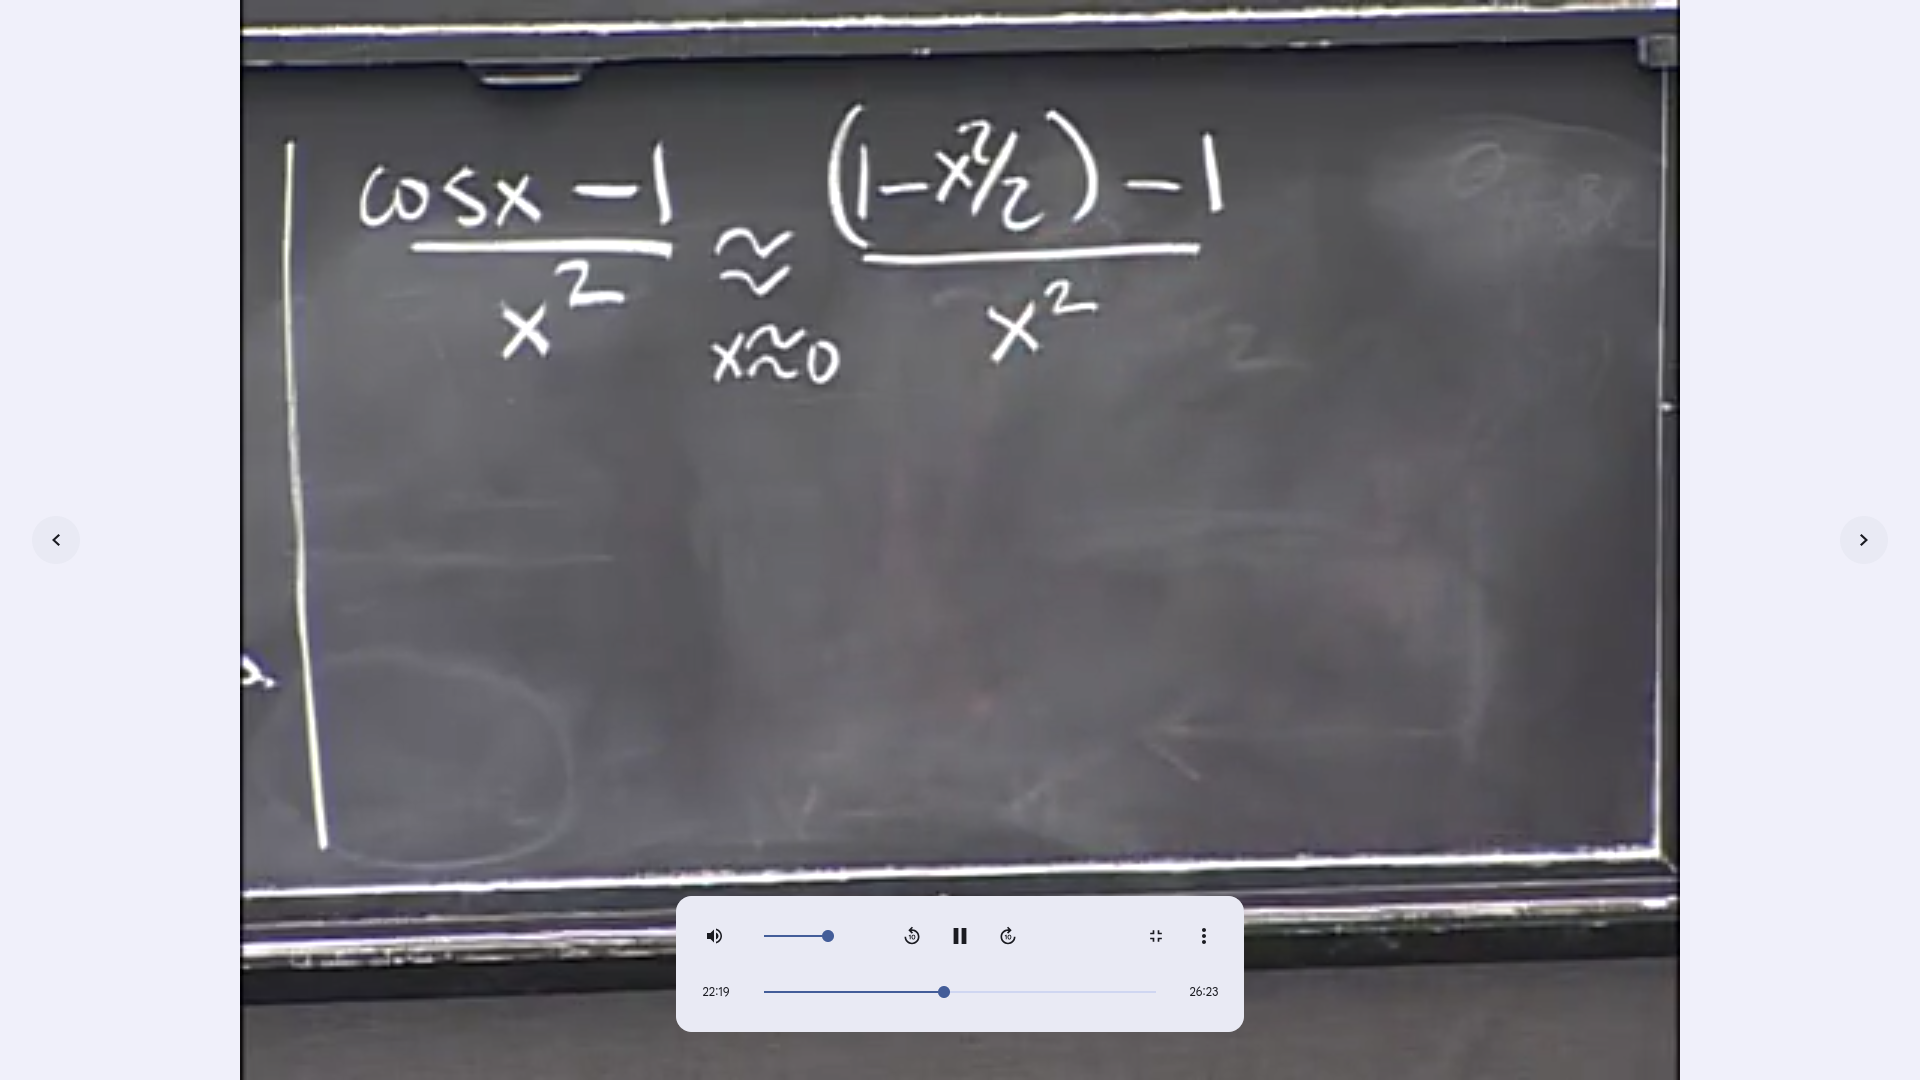 cosx - 1 / x² ≈ x≈0 (1 - x²/2) - 1 / x²
22:19
26:23